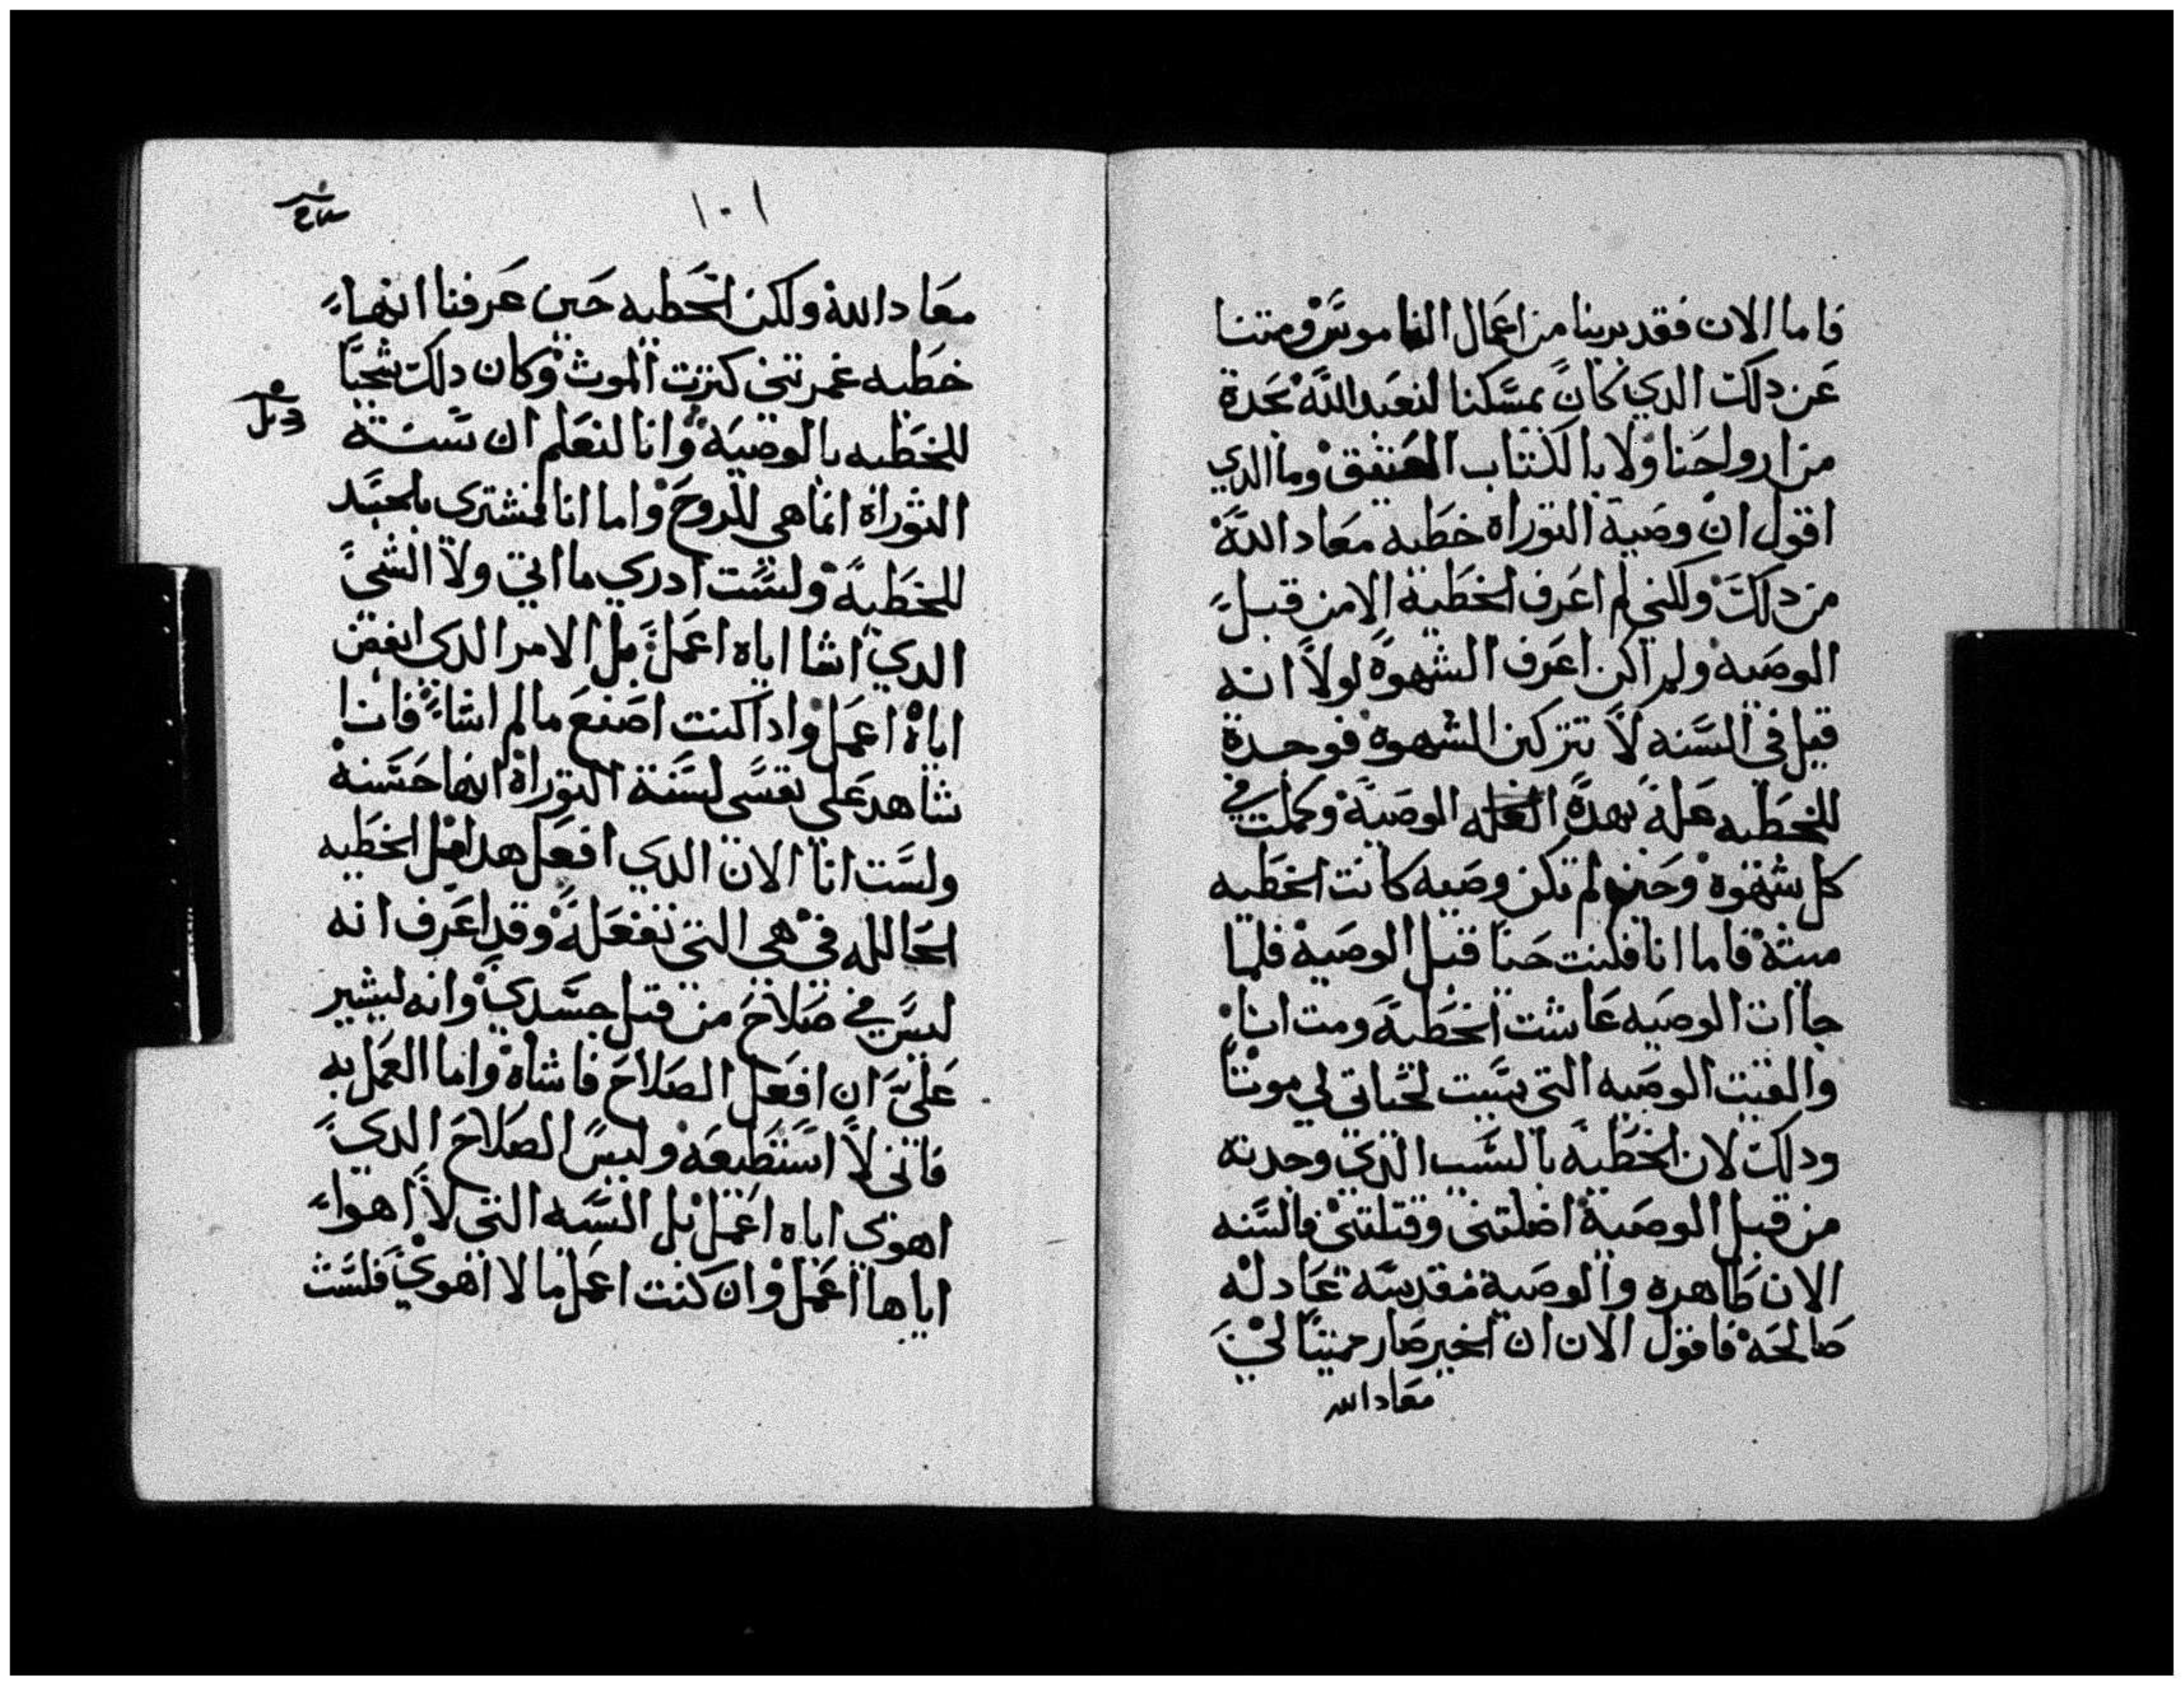 فاما الان فقد برينا من اعمال الناموس ومتنا
عن دلك الدي كان يمسكنا لنعبد الله بجدة
من ارواحنا ولا بالكتاب العتيق وما الدي
اقول ان وصية التوراه خطيه معاد الله
من دلك ولكني لم اعرف الخطية الا من قبل
الوصيه ولم اكن اعرف الشهوة لولا انه
قيل في السنه لا تتركن الشهوة فوجدة
للخطيه علة بهدة العله الوصية وكملت في
كل شهوة وحين لم تكن وصيه كانت الخطيه
ميتة فاما انا فكنت حيا قبل الوصية فلما
جاات الوصيه عاشت الخطية ومت انا
والفيت الوصيه التي سببت لحياتي لي موتا
ودلك لان الخطية بالسبب الدي وجدته
من قبل الوصية اضلتني وقتلتني فالسنه
الان طاهره والوصية مقدسة عادله
صالحة فاقول الان ان الخير صار ميتا لي
معاد الله
١٠١
معاد الله ولكن الخطيه حين عرفنا انها
خطيه غمرتني كثرت الموت وكان دلك شجبا
للخطيه بالوصية وانا لنعلم ان سنة
التوراة انما هي للروح واما انا فمشترى بالجسد
للخطية ولست ادري ما اتي ولا الشي
الدي اشا اياه اعمل بل الامر الدي ابغض
اياه اعمل وادا كنت اصنع ما لم اشاء فانا
شاهد على نفسي لسنة التوراة انها حسنة
ولست انا الان الدي افعل هدا بل الخطيه
الحالله في هي التي تفعله وقد اعرف انه
ليس في صلاح من قبل جسدي وانه ليشير
علي ان افعل الصلاح فاشاة واما العمل به
فاني لا استطيعه وليس الصلاح الدي
اهوي اياه اعمل بل السيه التي لا اهواء
اياها اعمل وان كنت اعمل ما لا اهوي فلست